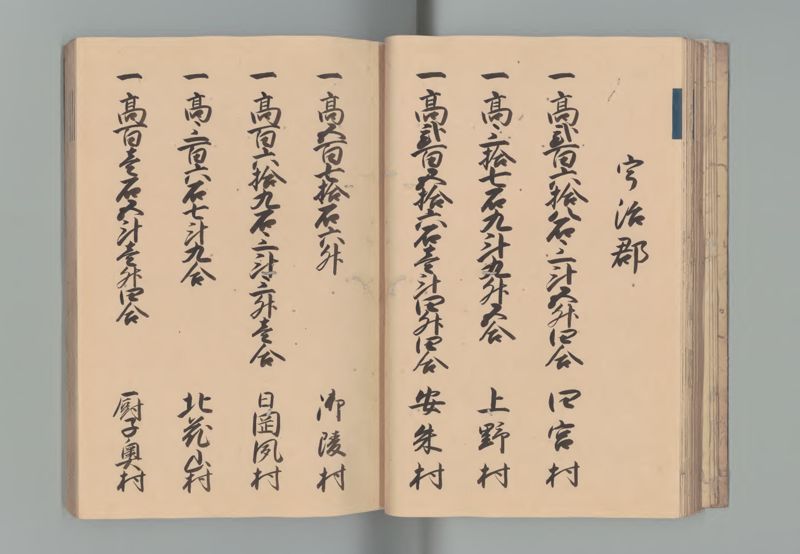 宇治郡
一高弐百六拾八石三斗五升四合 四宮村
一高三拾七石九斗九升五合 上野村
一高弐百五拾六石壱斗四升四合 安朱村
一高五百七拾石六升 御陵村
一高百六拾九石三斗三升壱合 日岡夙村
一高三百六石七斗九合 北花山村
一高百壱石五斗壱升四合 厨子奥村